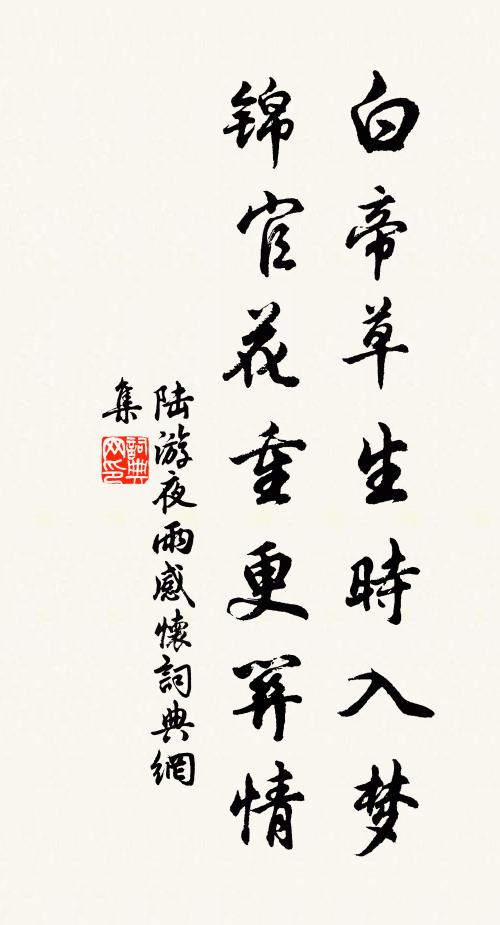 白帝草生時入梦
锦官花重更關情
陆游夜雨感懷詞典網
集
詞典网印